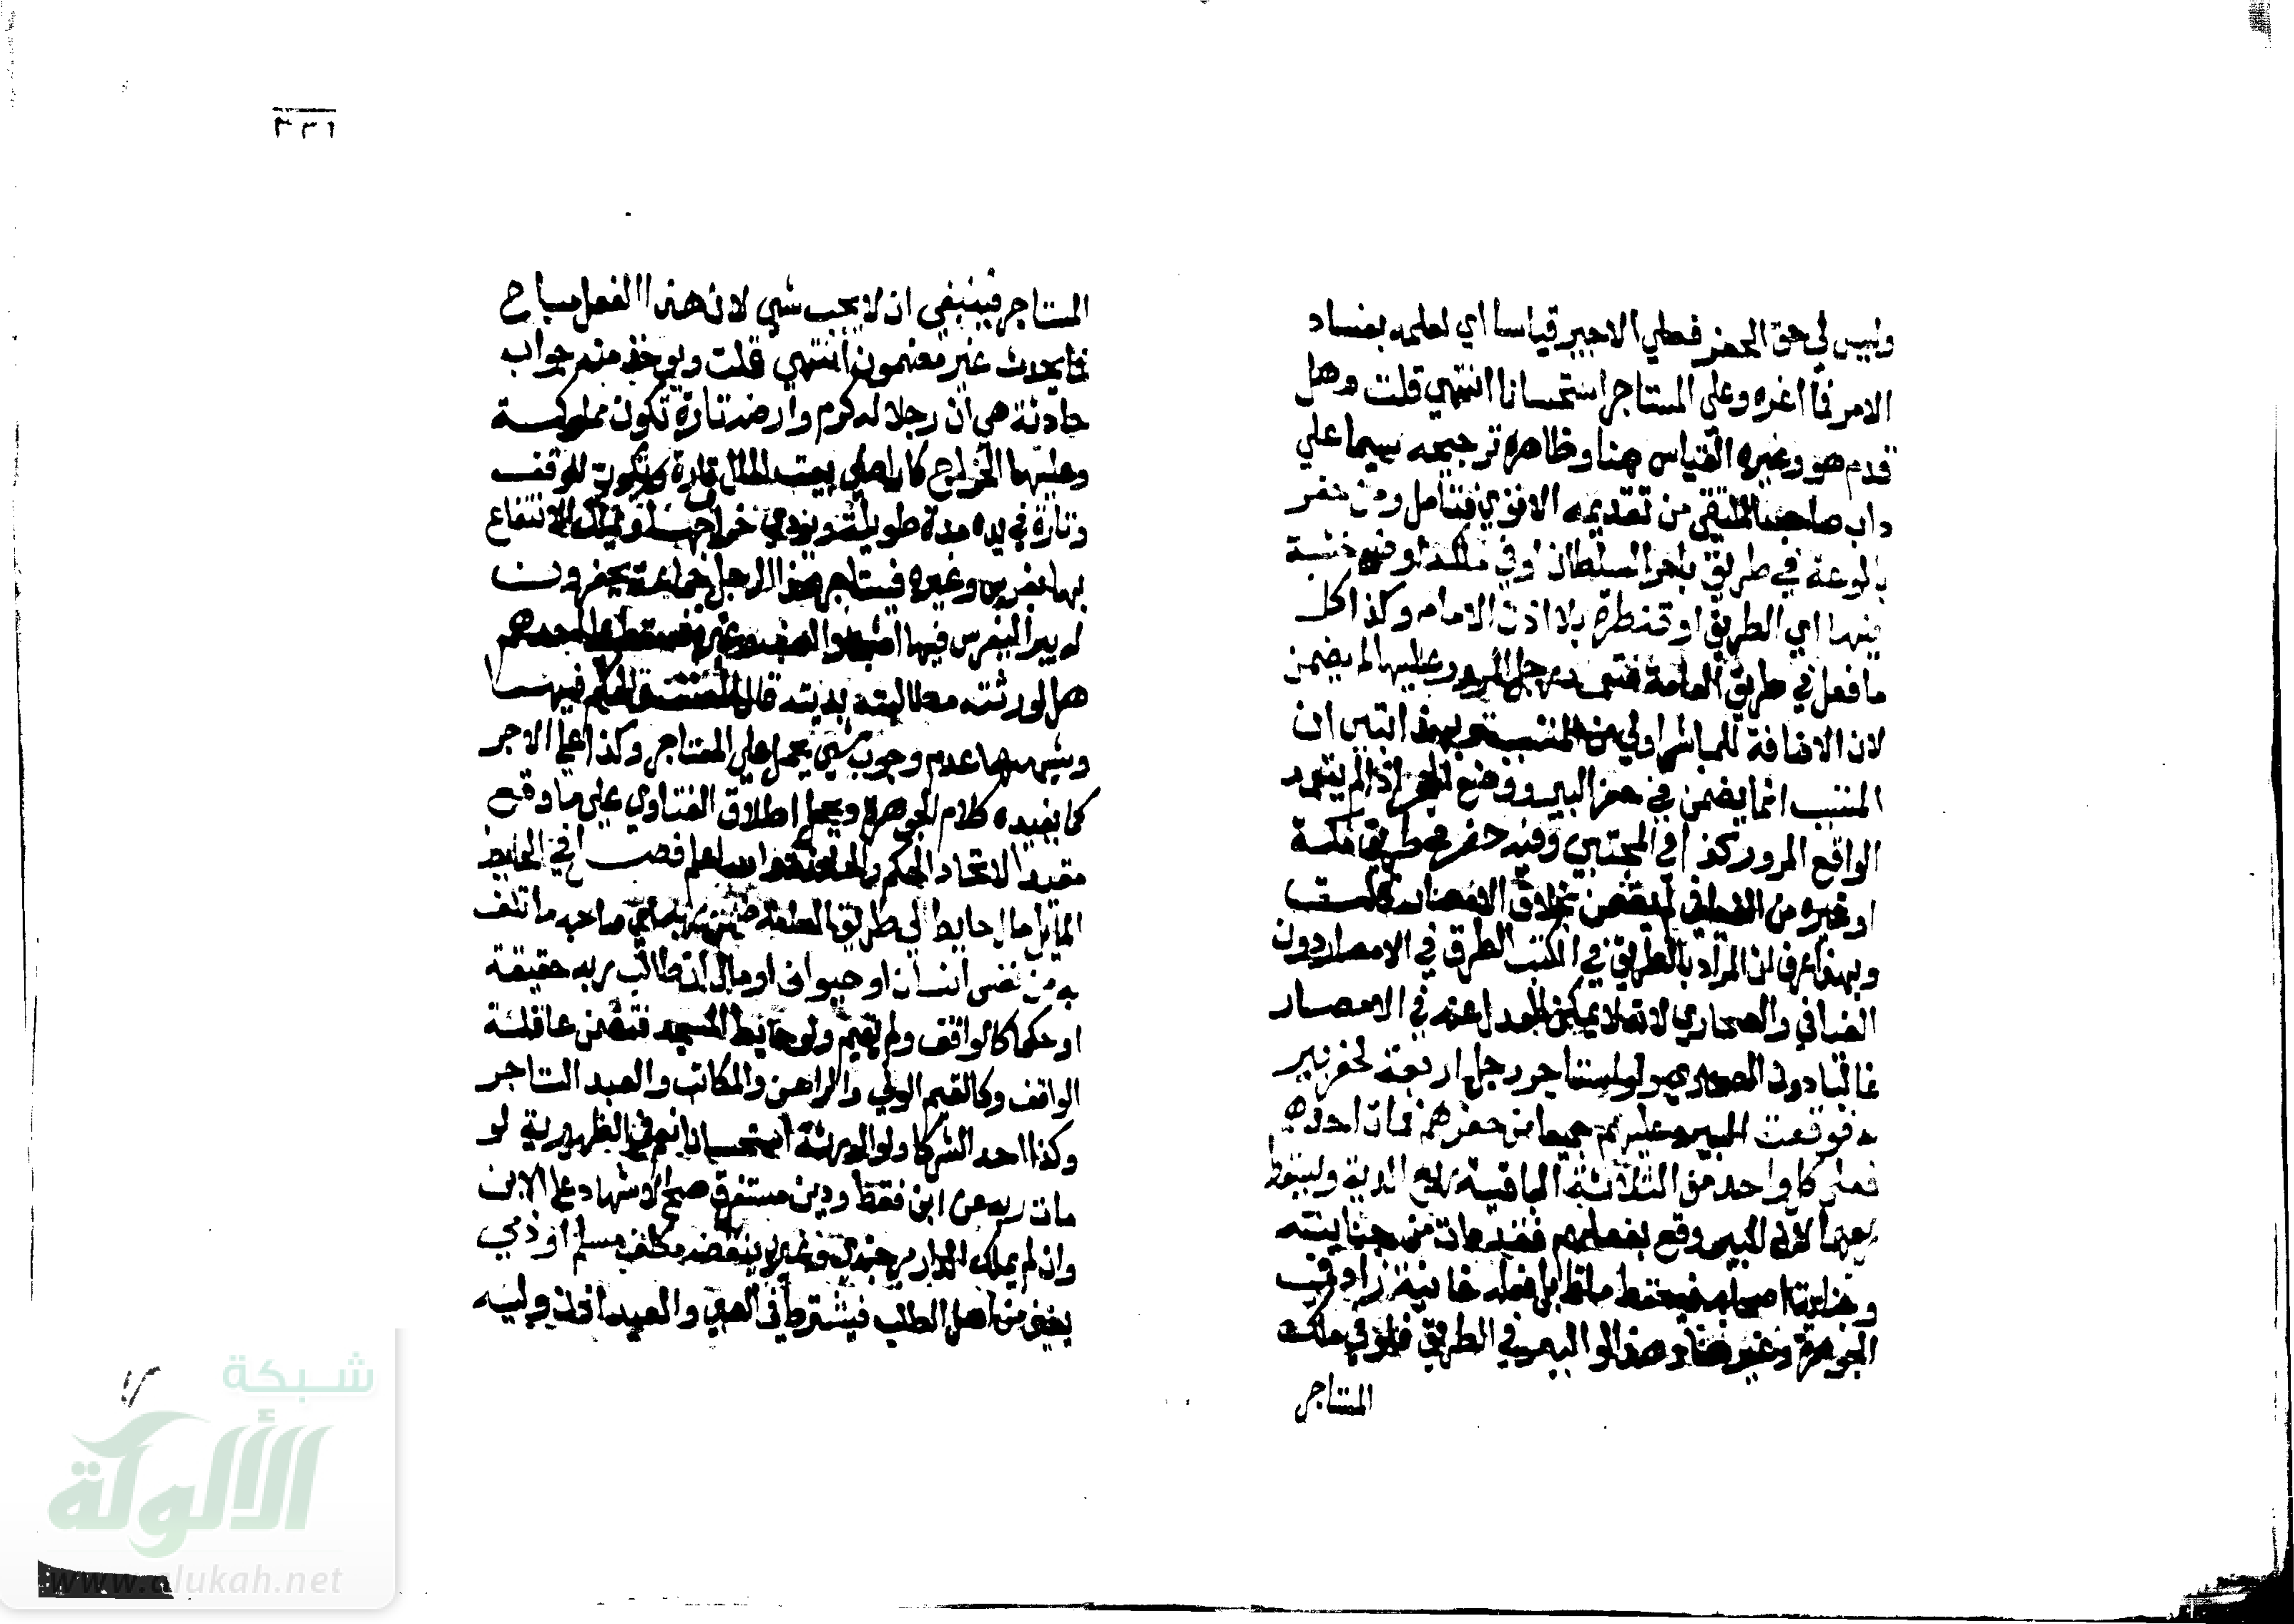 وليس لي حق الحفر فعلي الاجير قياسا اي لعلمه بفساد
الامر فما اغره وعلي المستاجر استحسانا انتهي قلت وهل
قدم هو وغيره القياس هنا وظاهره ترجيحه سيما علي
داب صاحب الملتقي من تقديمه الاقوي فتامل ومن حفر
بالوعة في طريق بامر السلطان او في ملكه او وضع خشبة
فيها اي الطريق او قنطرة بلا اذن الامام وكذا كل
ما فعل في طريق العامة فتعمد رجل المرور عليها لم يضمن
لان الاضافة للمباشر اولي من المتسبب وبهذا تبين ان
المتسبب انما يضمن في حفر البير ووضع الحجر اذا لم يتعمد
الواقع المرور كذا في المجتبي وفيه حفر في طريق مكة
او غيره من الفيافي لم يضمن بخلاف الامصار
وبهذا عرف ان المراد بالطريق في الكتب الطرق في الامصار دون
الفيافي والصحاري لانه لا يمكن العدول عنه في الامصار
غالبا دون الصحاري ولو استاجر رجل اربعة لحفر بير
له فوقعت البير عليهم جميعا من حفرهم فمات احدهم
فعلي كل واحد من الثلاثة الباقية ربع الدية ويسقط
ربعها لان البير وقع بفعلهم فقد مات من جنايته
وجناية اصحابه فيسقط ما قابل فعله خانية زاد في
الجوهرة وغيرها وهذا لو البير في الطريق فلو في ملك
المستاجر
٢٣١
المستاجر فينبغي ان لا يجب شي لان هذا الفعل مباح
فما يحدث غير مضمون انتهي قلت ويوخذ منه جواب
حادثة هي ان رجلا له كرم وارضه تارة تكون مملوكة
وعليها الخراج كاراضي بيت المال تارة وتكون للوقف
وتارة في يده مدة طويلة ويودي خراجها ويملك الانتفاع
بها بغرس وغيره فيستاجر هذا الرجل جماعة يحفرون
له بيرا ليغرس فيها اشجار العنب وغيره فسقط علي احدهم
هل لورثته مطالبته بديته قال المصنف والحكم فيها
وشبهها عدم وجوب شي علي المستاجر وكذا علي الاجر
كما يفيده كلام الجوهرة ويحمل اطلاق الفتاوي علي ما وقع
مقيدا لاتحاد الحكم والحادثة والله اعلم فصل في الحايط
المايل مال حايط الي طريق العامة ضمن ربه اي صاحبه ما تلف
به من نفس انسان او حيوان او مال ان طالب ربه حقيقة
او حكما كالواقف ولو القيم ولو حايط المسجد فتضمن عاقلة
الواقف وكالقيم الولي والراهن والمكاتب والعبد التاجر
وكذا احد الشركا ولو الورثة استحسانا نعم في الظهيرية لو
مات ربه عن ابن فقط ودين مستغرق صح الاشهاد علي الابن
وان لم يملك الدار بنقضه مكلف مسلم او ذمي
يعني من اهل الطلب فيشترط في الصبي والعبد اذن وليه
شبكة
الألوكة
www.alukah.net